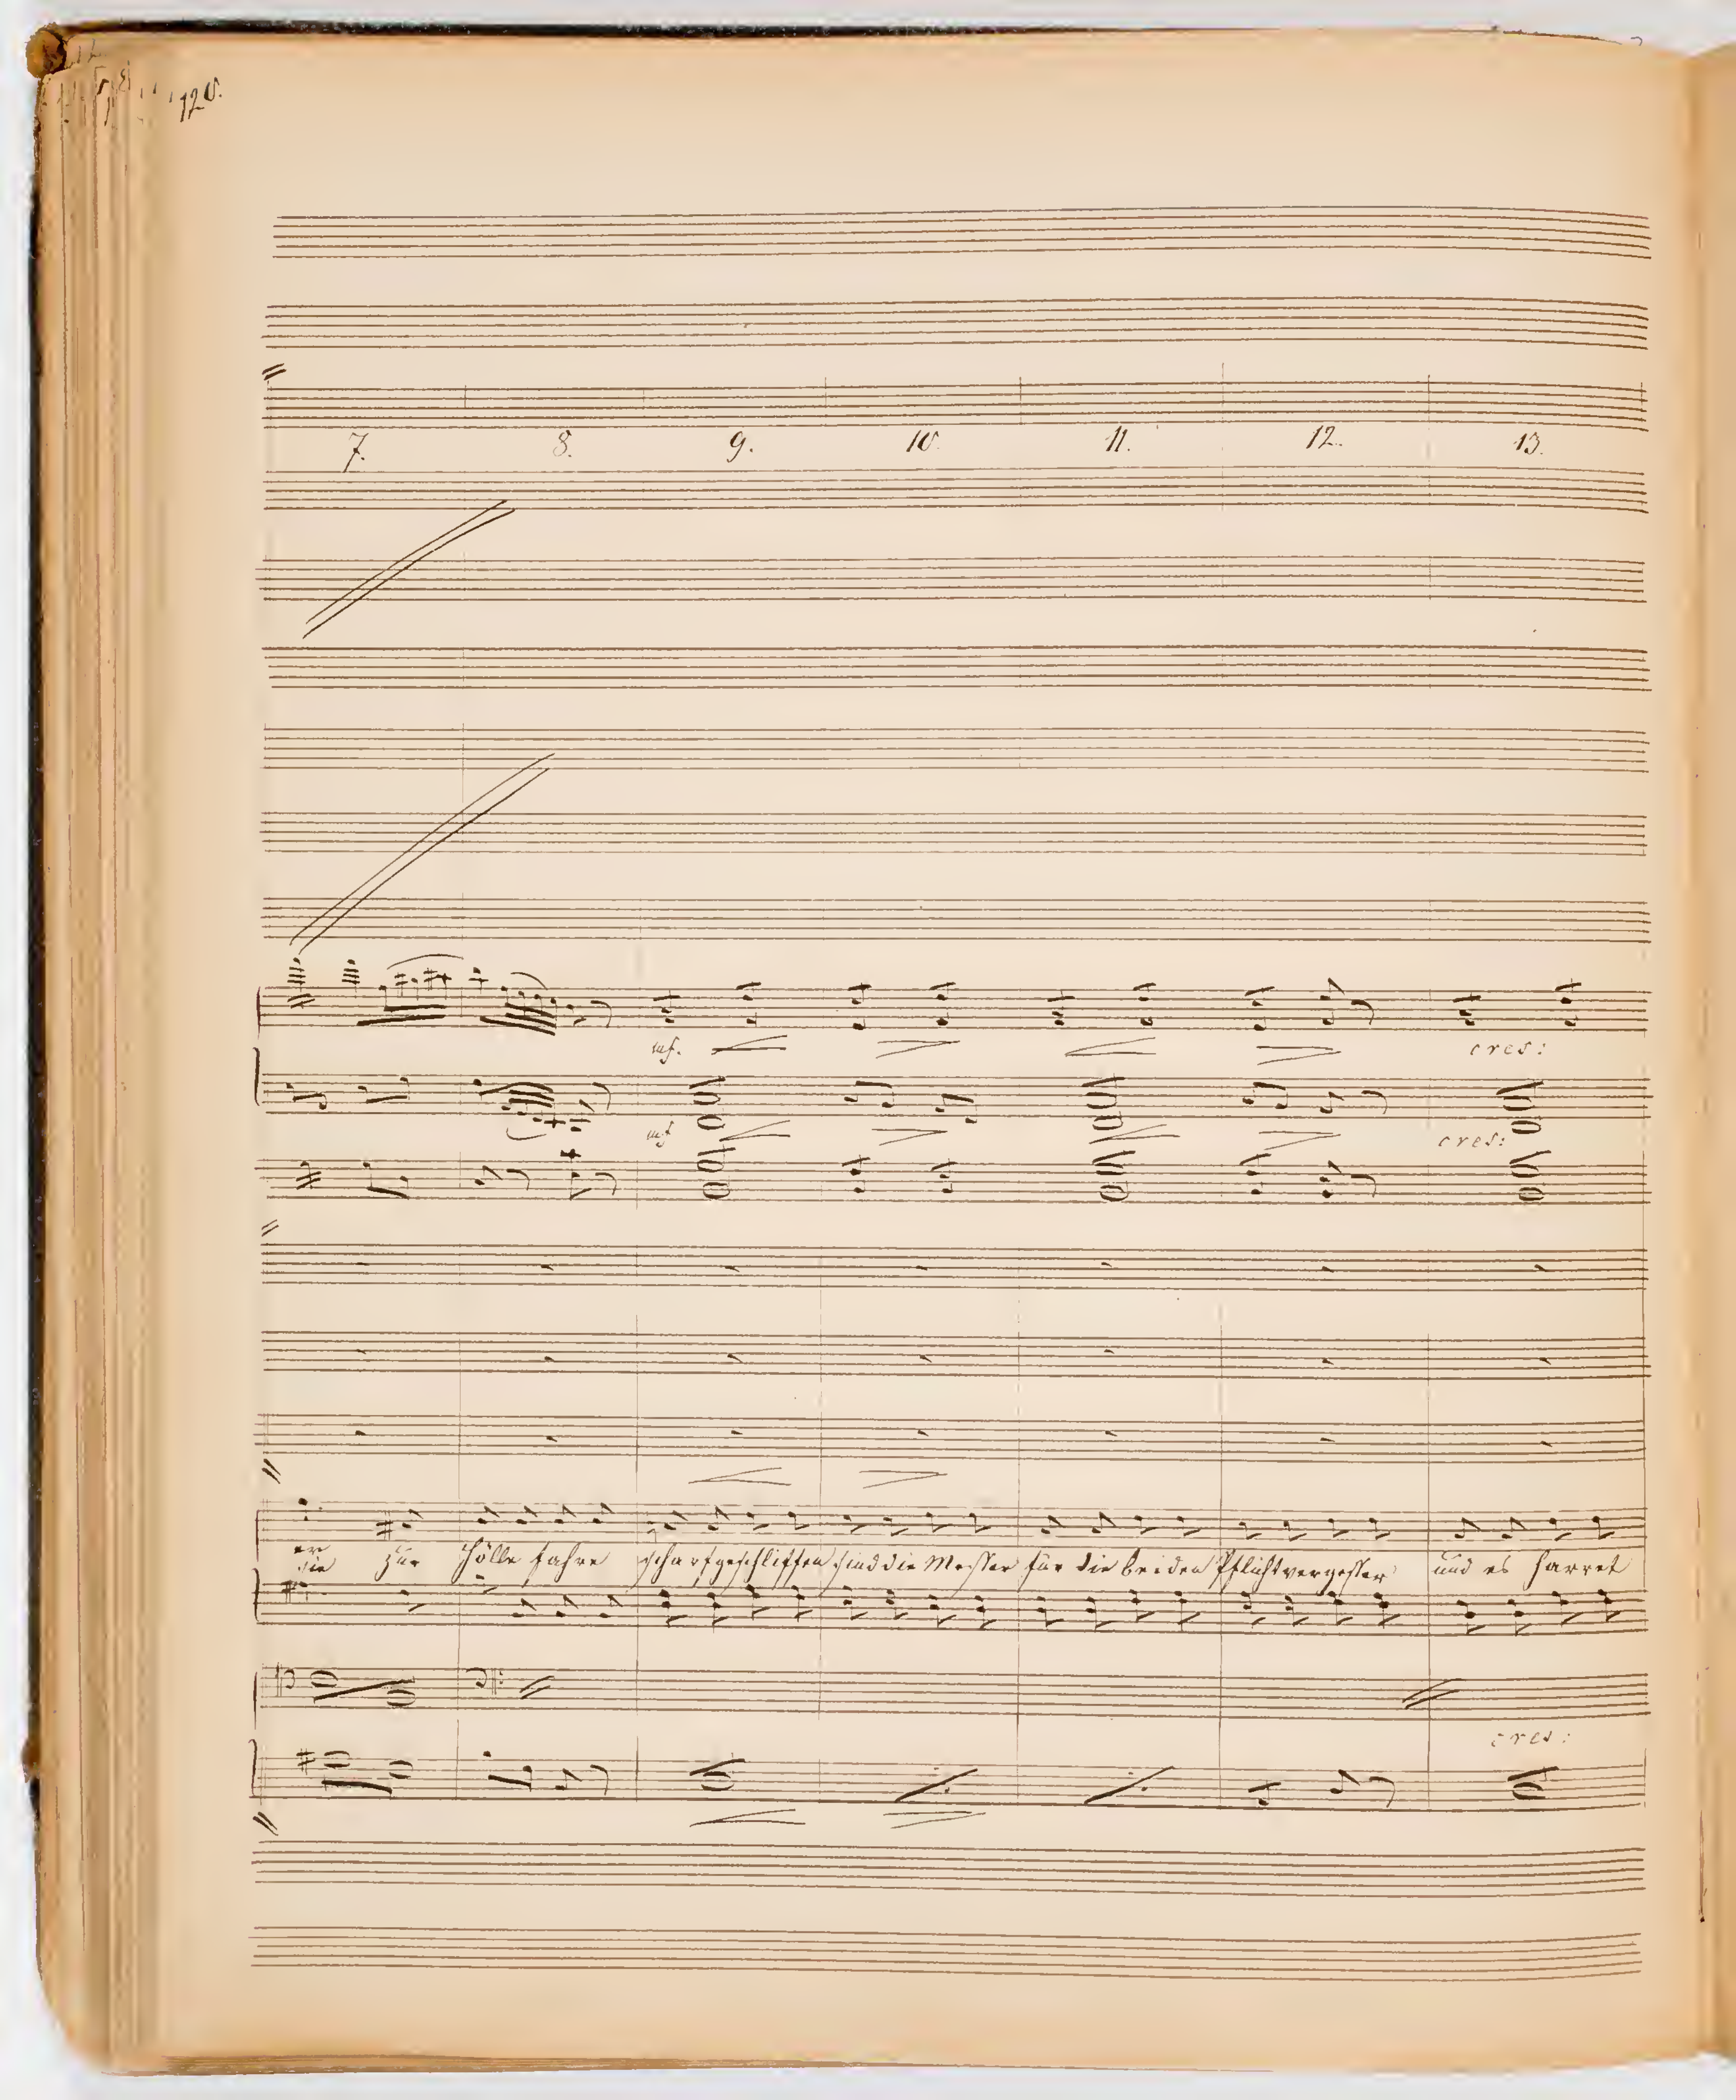 120.
7. 8. 9. 10. 11. 12. 13.
mf. cres:
mf cres:
er
sie zur Hölle fahre scharfgeschliffen sind die Messer für die beiden Pflichtvergesser und es harret
cres: